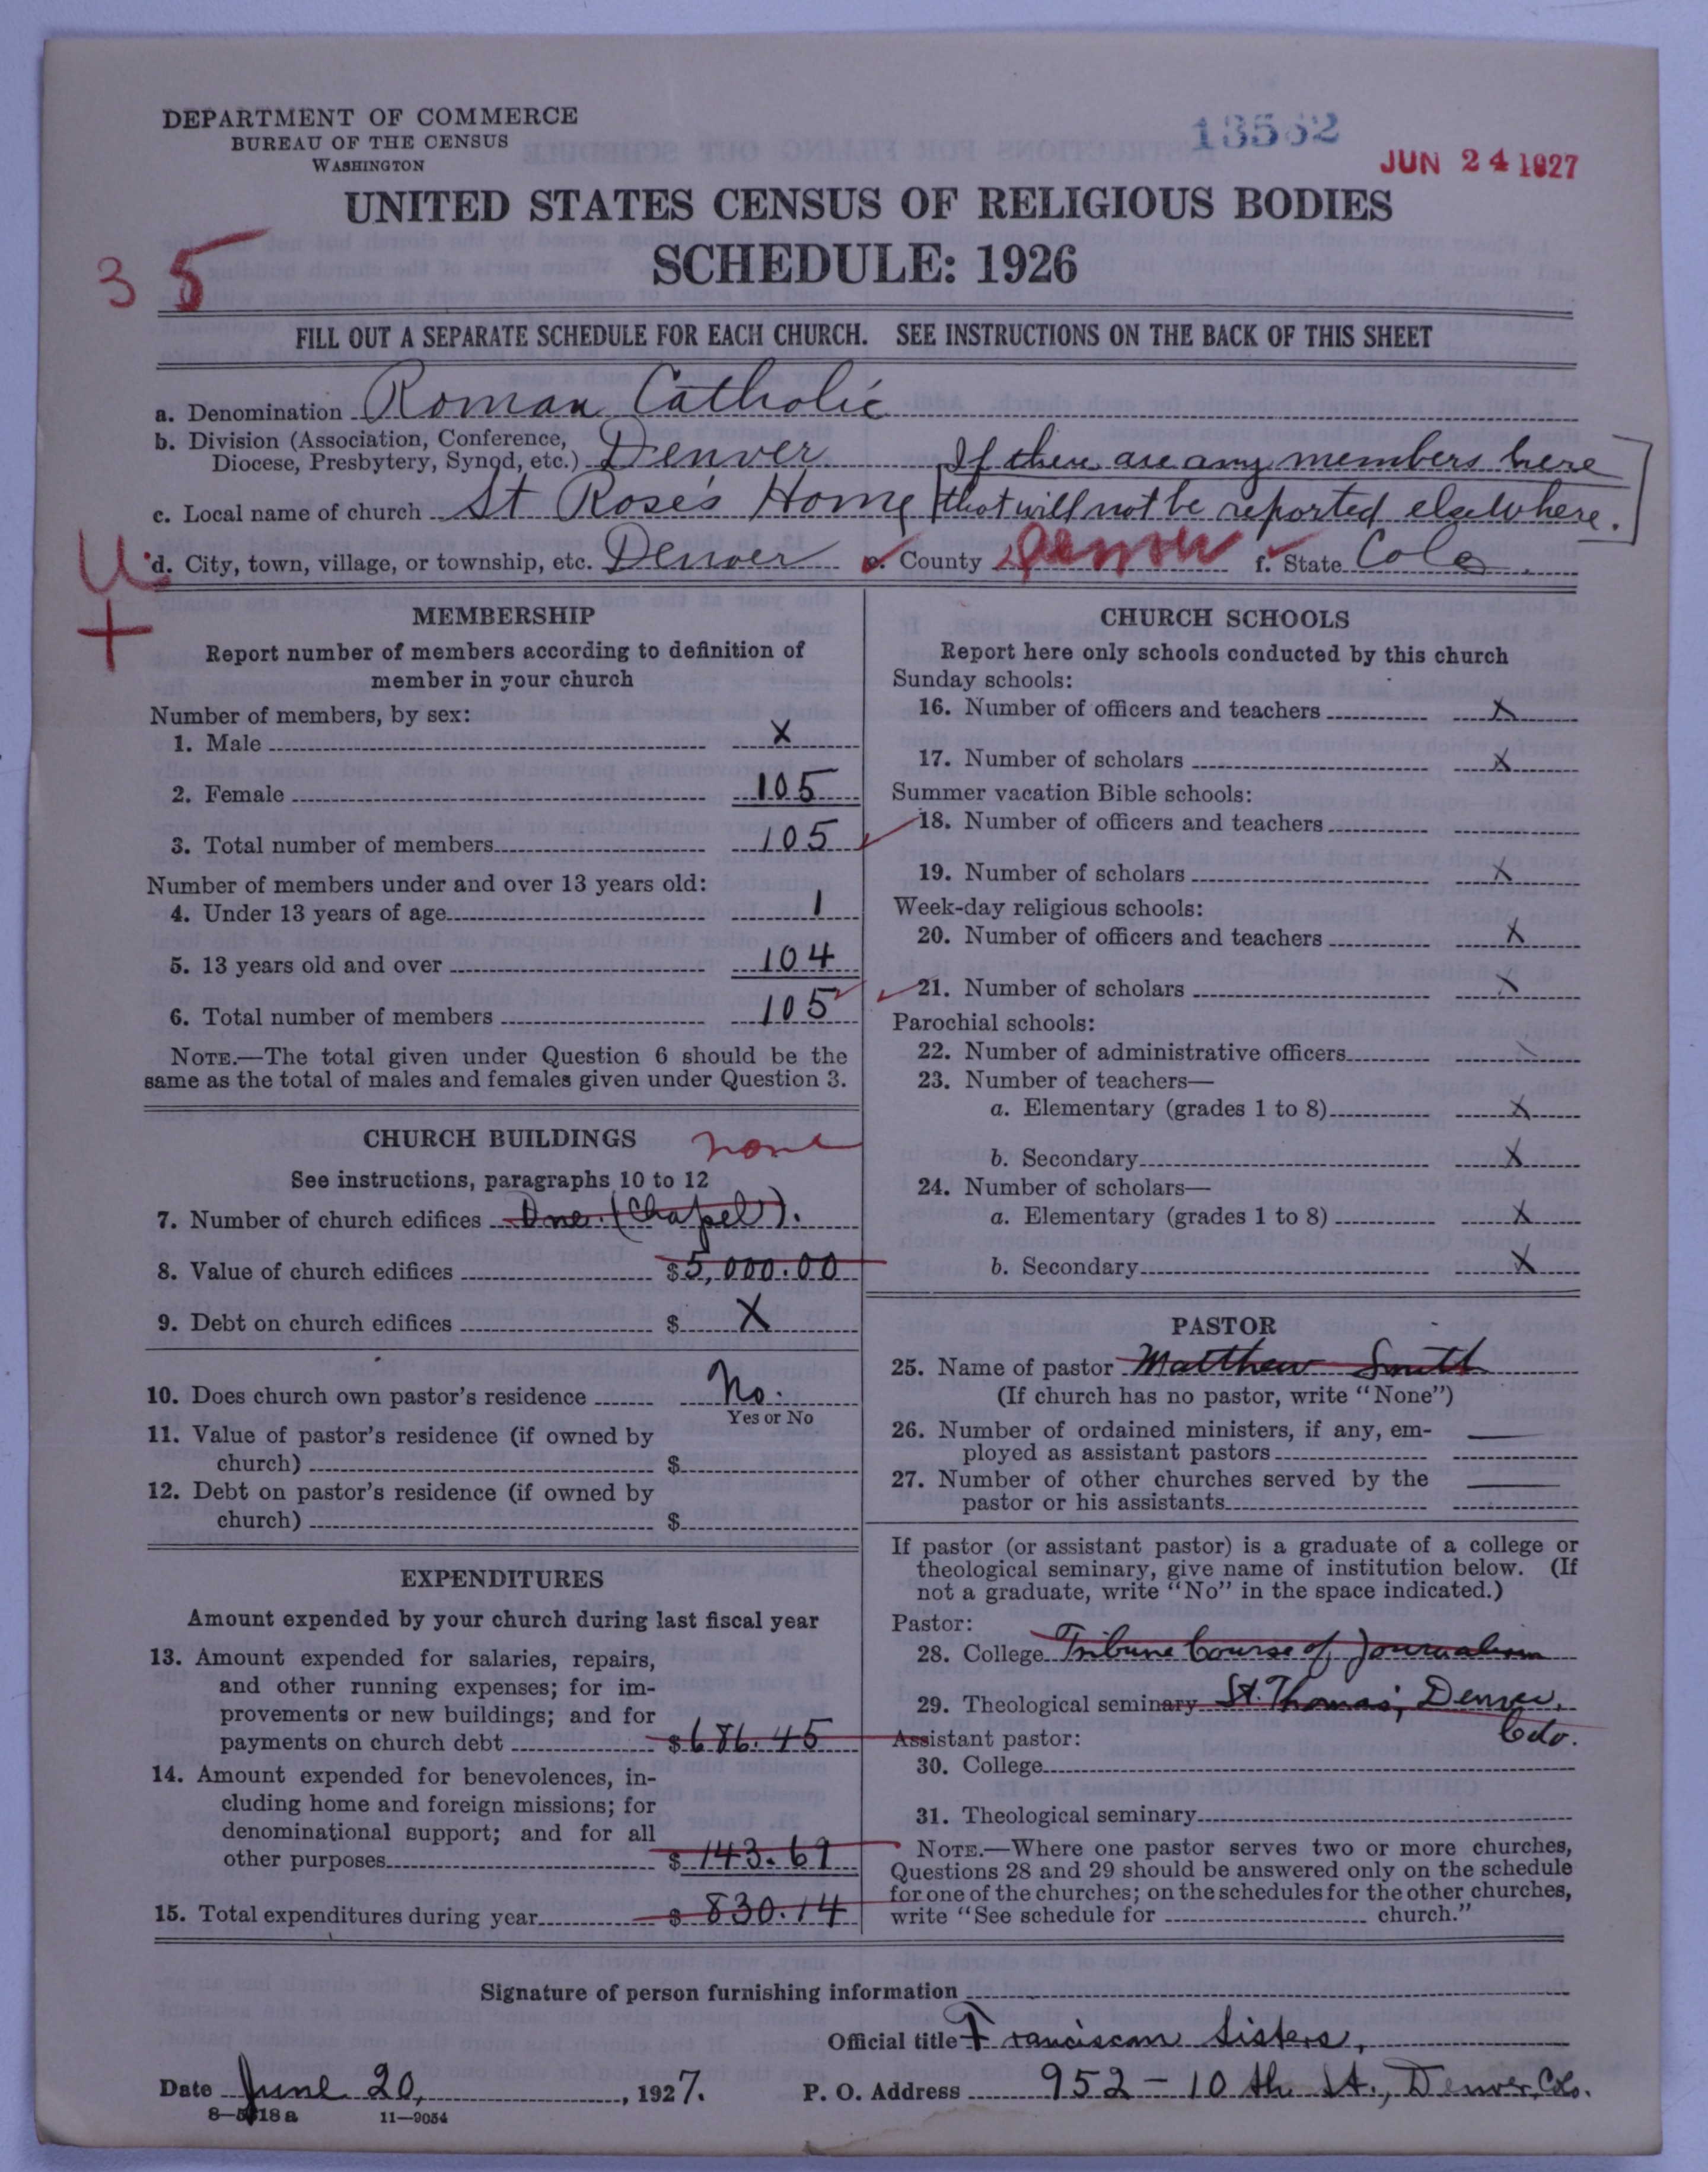 DEPARTMENT OF COMMERCE
BUREAU OF THE CENSUS
WASHINGTON
13562
JUN 24 1927
UNITED STATES CENSUS OF RELIGIOUS BODIES
SCHEDULE: 1926
35
FILL OUT A SEPARATE SCHEDULE FOR EACH CHURCH. SEE INSTRUCTIONS ON THE BACK OF THIS SHEET
a. Denomination Roman Catholic
b. Division (Association, Conference,
Diocese, Presbytery, Synod, etc.) Denver If there are any members here
c. Local name of church St Rose's Home that will not be reported elsewhere.
U d. City, town, village, or township, etc. Denver e. County Denver f. State Colo.
+
MEMBERSHIP
Report number of members according to definition of
member in your church
Number of members, by sex:
1. Male X
2. Female 105
3. Total number of members 105
Number of members under and over 13 years old:
4. Under 13 years of age 1
5. 13 years old and over 104
6. Total number of members 105
NOTE.—The total given under Question 6 should be the
same as the total of males and females given under Question 3.
CHURCH BUILDINGS none
See instructions, paragraphs 10 to 12
7. Number of church edifices One. (Chapel).
8. Value of church edifices $5,000.00
9. Debt on church edifices $ X
10. Does church own pastor's residence No.
Yes or No
11. Value of pastor's residence (if owned by
church) $
12. Debt on pastor's residence (if owned by
church) $
EXPENDITURES
Amount expended by your church during last fiscal year
13. Amount expended for salaries, repairs,
and other running expenses; for im-
provements or new buildings; and for
payments on church debt $686.45
14. Amount expended for benevolences, in-
cluding home and foreign missions; for
denominational support; and for all
other purposes $143.69
15. Total expenditures during year $830.14
CHURCH SCHOOLS
Report here only schools conducted by this church
Sunday schools:
16. Number of officers and teachers X
17. Number of scholars X
Summer vacation Bible schools:
18. Number of officers and teachers
19. Number of scholars X
Week-day religious schools:
20. Number of officers and teachers X
21. Number of scholars X
Parochial schools:
22. Number of administrative officers
23. Number of teachers—
a. Elementary (grades 1 to 8) X
b. Secondary X
24. Number of scholars—
a. Elementary (grades 1 to 8) X
b. Secondary X
PASTOR
25. Name of pastor Matthew Smith
(If church has no pastor, write "None")
26. Number of ordained ministers, if any, em-
ployed as assistant pastors —
27. Number of other churches served by the
pastor or his assistants —
If pastor (or assistant pastor) is a graduate of a college or
theological seminary, give name of institution below. (If
not a graduate, write "No" in the space indicated.)
Pastor:
28. College Tribune Course of Journalism
29. Theological seminary St. Thomas', Denver,
Colo.
Assistant pastor:
30. College
31. Theological seminary
NOTE.—Where one pastor serves two or more churches,
Questions 28 and 29 should be answered only on the schedule
for one of the churches; on the schedules for the other churches,
write "See schedule for church."
Signature of person furnishing information
Official title Franciscan Sisters,
Date June 20, 1927. P. O. Address 952 - 10 th St., Denver, Colo.
8—5118a 11—9054